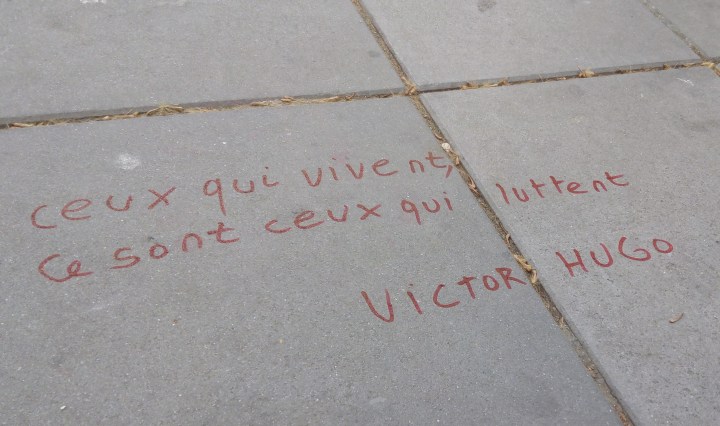 ceux qui vivent,
ce sont ceux qui luttent
VICTOR HUGO